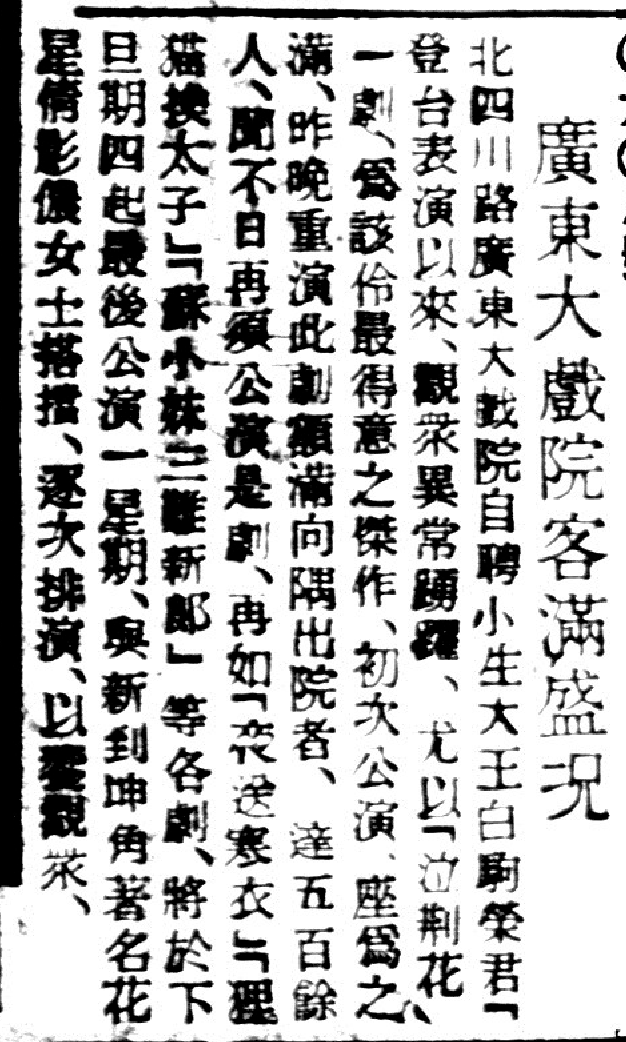 廣東大戲院客滿盛况
北四川路廣東大戲院自聘小生大王白駒榮君「
登台表演以來、觀衆異常踴躍、尤以「泣荆花、
一劇、爲該伶最得意之傑作、初次公演、座爲之
滿、昨晚重演此劇額滿向隅出院者、達五百餘
人、聞不日再須公演是劇、再如「夜送寒衣」「狸
猫換太子」「蘇小妹三難新郎」等各劇、將於下
旦期四起最後公演一星期、與新到坤角著名花
星倩影儂女士搭擋、逐次排演、以饗觀衆、